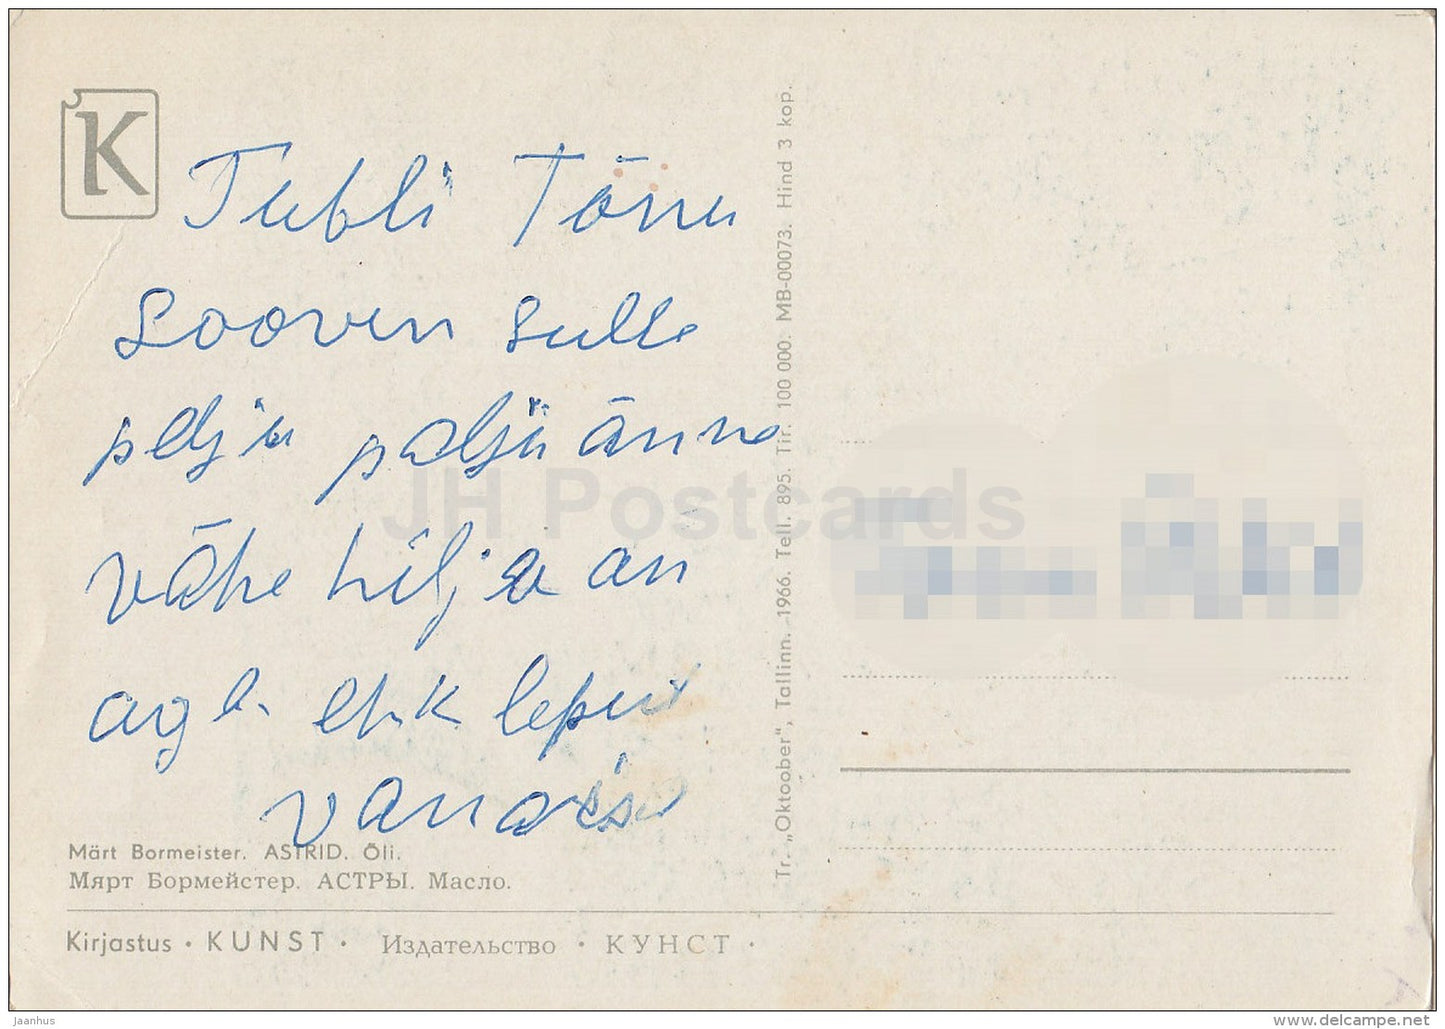 K
Tubli Tõnu
Soovin sulle
palju palju õnne
vähe hilja on
aga ehk lepid
vanaisa
Märt Bormeister. ASTRID. Õli.
Мярт Бормейстер. АСТРЫ. Масло.
Kirjastus · KUNST · Издательство · КУНСТ ·
Tr. „Oktoober", Tallinn. 1966. Tell. 895. Tir. 100 000. MB-00073. Hind 3 kop.
JH Postcards
jaanhus
www.delcampe.net